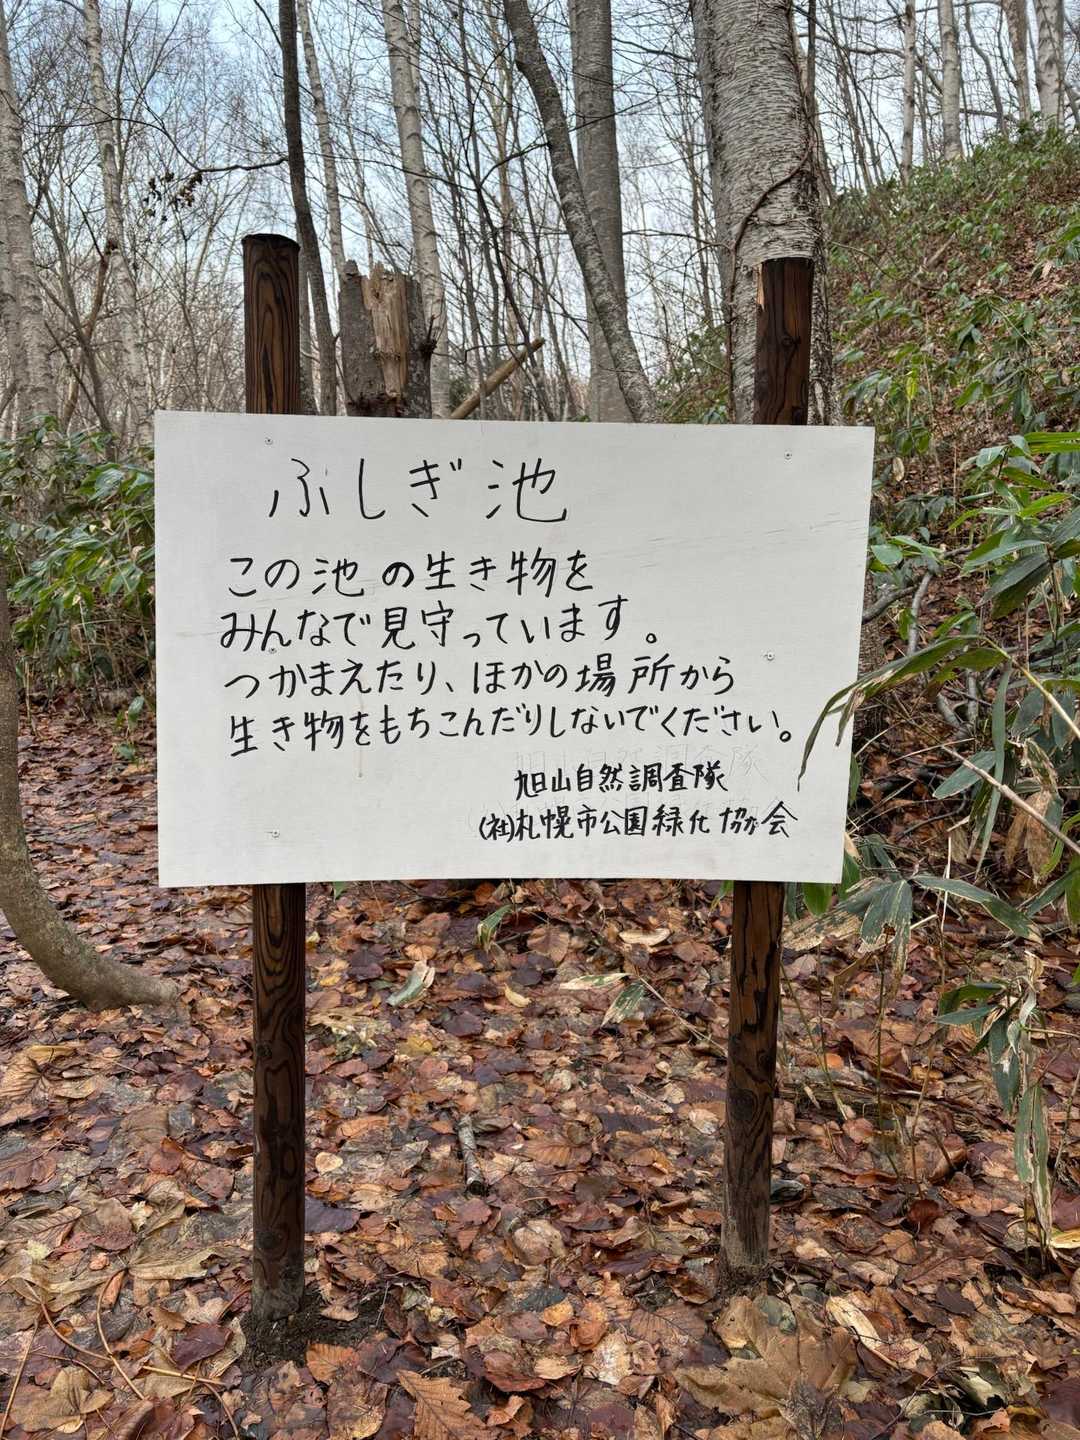 ふしぎ池
この池の生き物を
みんなで見守っています。
つかまえたり、ほかの場所から
生き物をもちこんだりしないでください。
旭山自然調査隊
(社)札幌市公園緑化協会